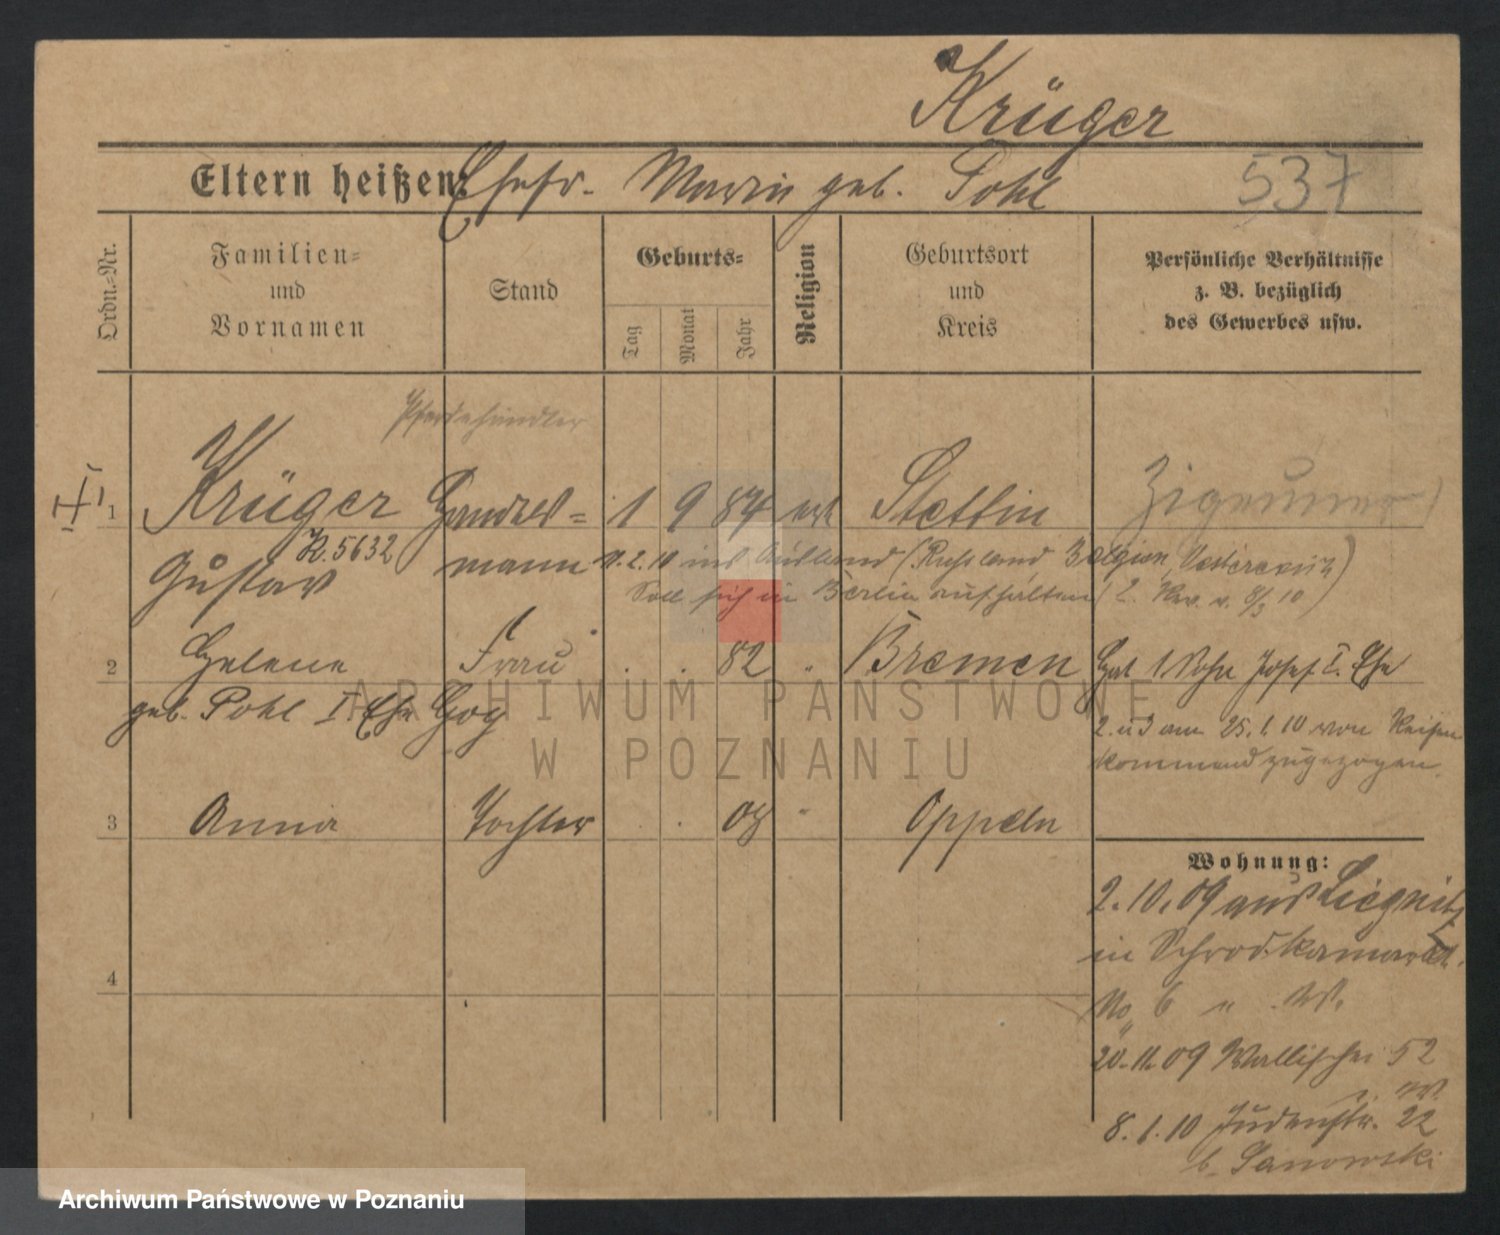 Krüger
Eltern heißen: Ehefr. Marie geb. Pohl 537
Ordn.-Nr.
Familien-
und
Vornamen
Stand
Geburts-
Tag
Monat
Jahr
Religion
Geburtsort
und
Kreis
Persönliche Verhältnisse
z. B. bezüglich
des Gewerbes usw.
Pferdehändler
1 Krüger Handels- 1 9 84 Stettin Zigeuner
K. 5632
Gustav mann 2. 10 ins Ausland (Russland Belgien Oesterreich)
Soll sich in Berlin aufhalten 8/3 10)
2 Helene Frau . . 82 " Bremen Hat 1 Sohn Josef I. Ehe
geb. Pohl I Ehe Goy
2. u 3 am 25. 1. 10 von Reisen
kommend zugezogen.
3 Anna Tochter . . 08 " Oppeln
Wohnung:
2. 10. 09 aus Liegnitz
in Schrodkamarkt.
No 6 "
4
20. 11. 09 Wallischei 52
8. 1. 10 Judenstr. 22
b. Janowski
ARCHIWUM PAŃSTWOWE
W POZNANIU
Archiwum Państwowe w Poznaniu